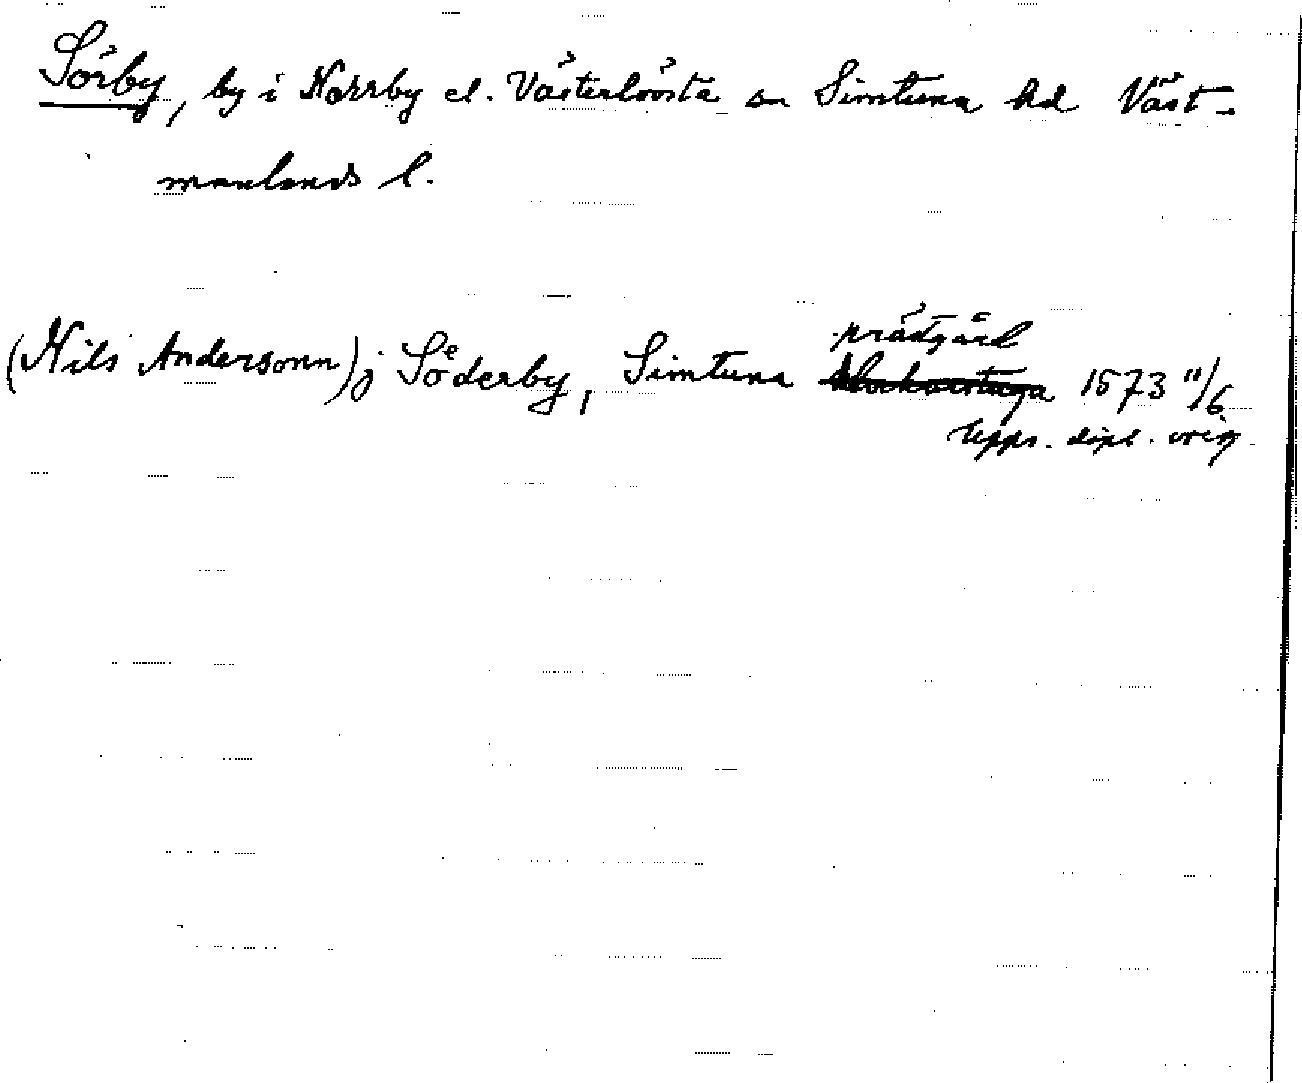 Sörby, by i Norrby el. Västerlövsta sn Simtuna hd Väst-
manlands l.
prästgård
(Nils Andersonn) j Söderby, Simtuna 1573 11/6
Upps. dipl. orig.